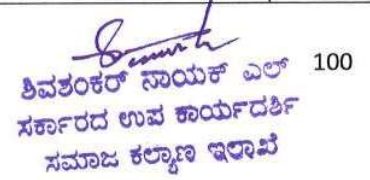 ಶಿವಶಂಕರ್ ನಾಯಕ್ ಎಲ್ 100
ಸರ್ಕಾರದ ಉಪ ಕಾರ್ಯದರ್ಶಿ
ಸಮಾಜ ಕಲ್ಯಾಣ ಇಲಾಖೆ